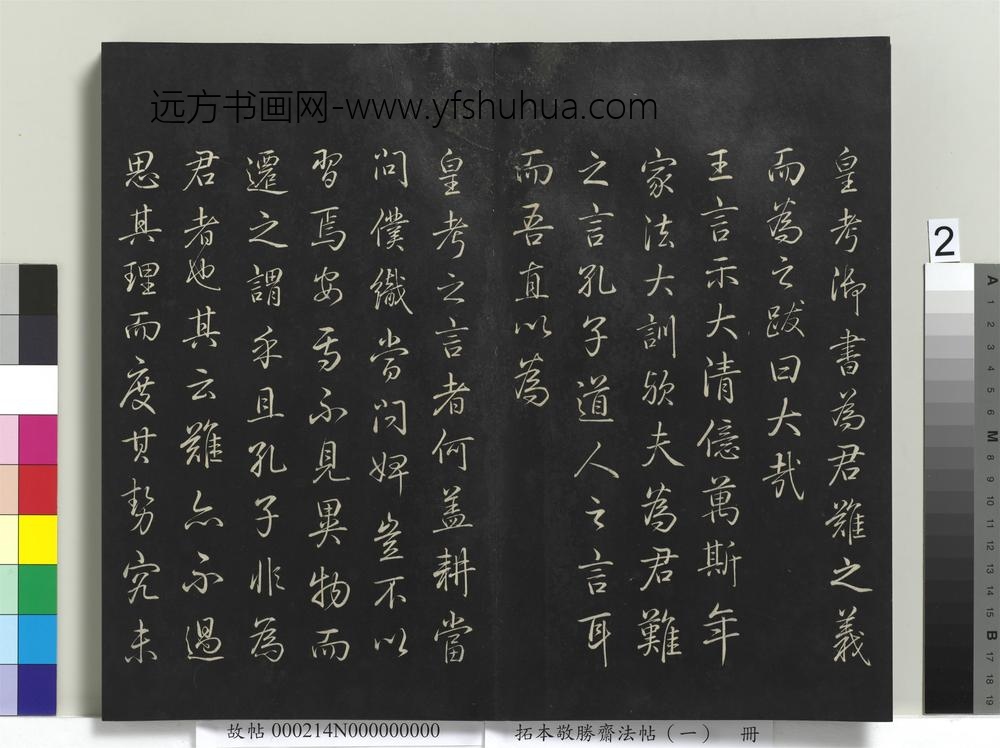 远方书画网-www.yfshuhua.com
皇考御書為君難之義
而為之跋曰大哉
王言示大清億萬斯年
家法大訓欤夫為君難
之言孔子道人之言耳
而吾直以為
皇考之言者何盖耕當
问僕織當问婢豈不以
習焉安焉不見異物而
遷之謂乎且孔子非為
君者也其云難亦不過
思其理而度其勢究未
2
A
1
2
3
4
5
6
M
8
9
10
11
12
13
14
15
B
17
18
19
故帖 000214N000000000
拓本敬勝齋法帖（一） 冊